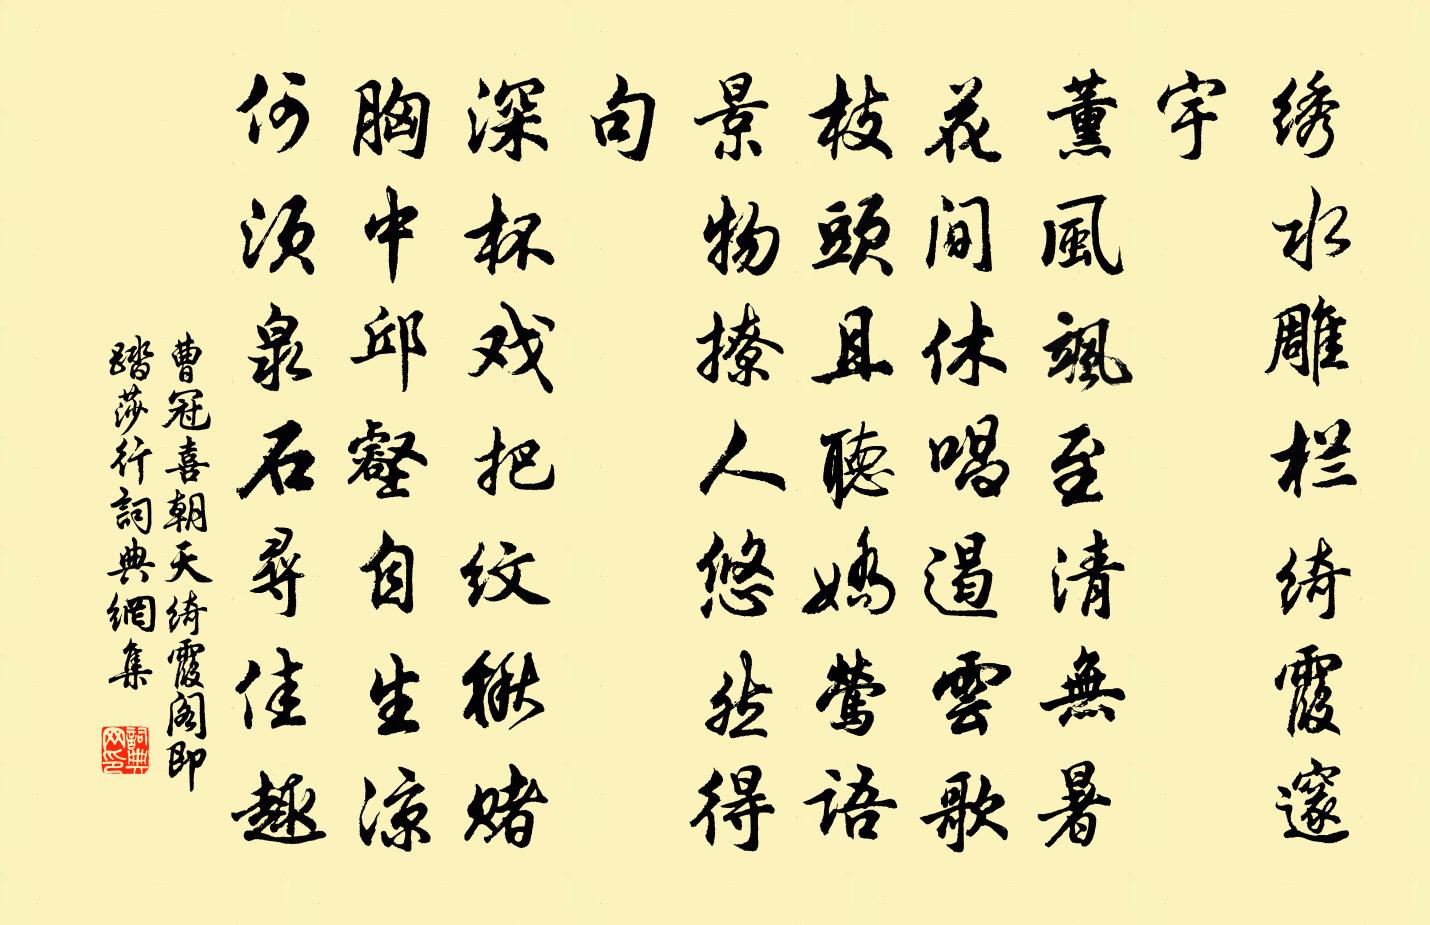 绣水雕栏绮霞邃
宇
薰風颯至清無暑
花间休唱遏雲歌
枝頭且聽嬌莺语
景物撩人悠然得
句
深杯戏把纹楸赌
胸中邱壑自生凉
何须泉石尋佳趣
曹冠喜朝天绮霞阁即
踏莎行詞典網集
詞典
网印